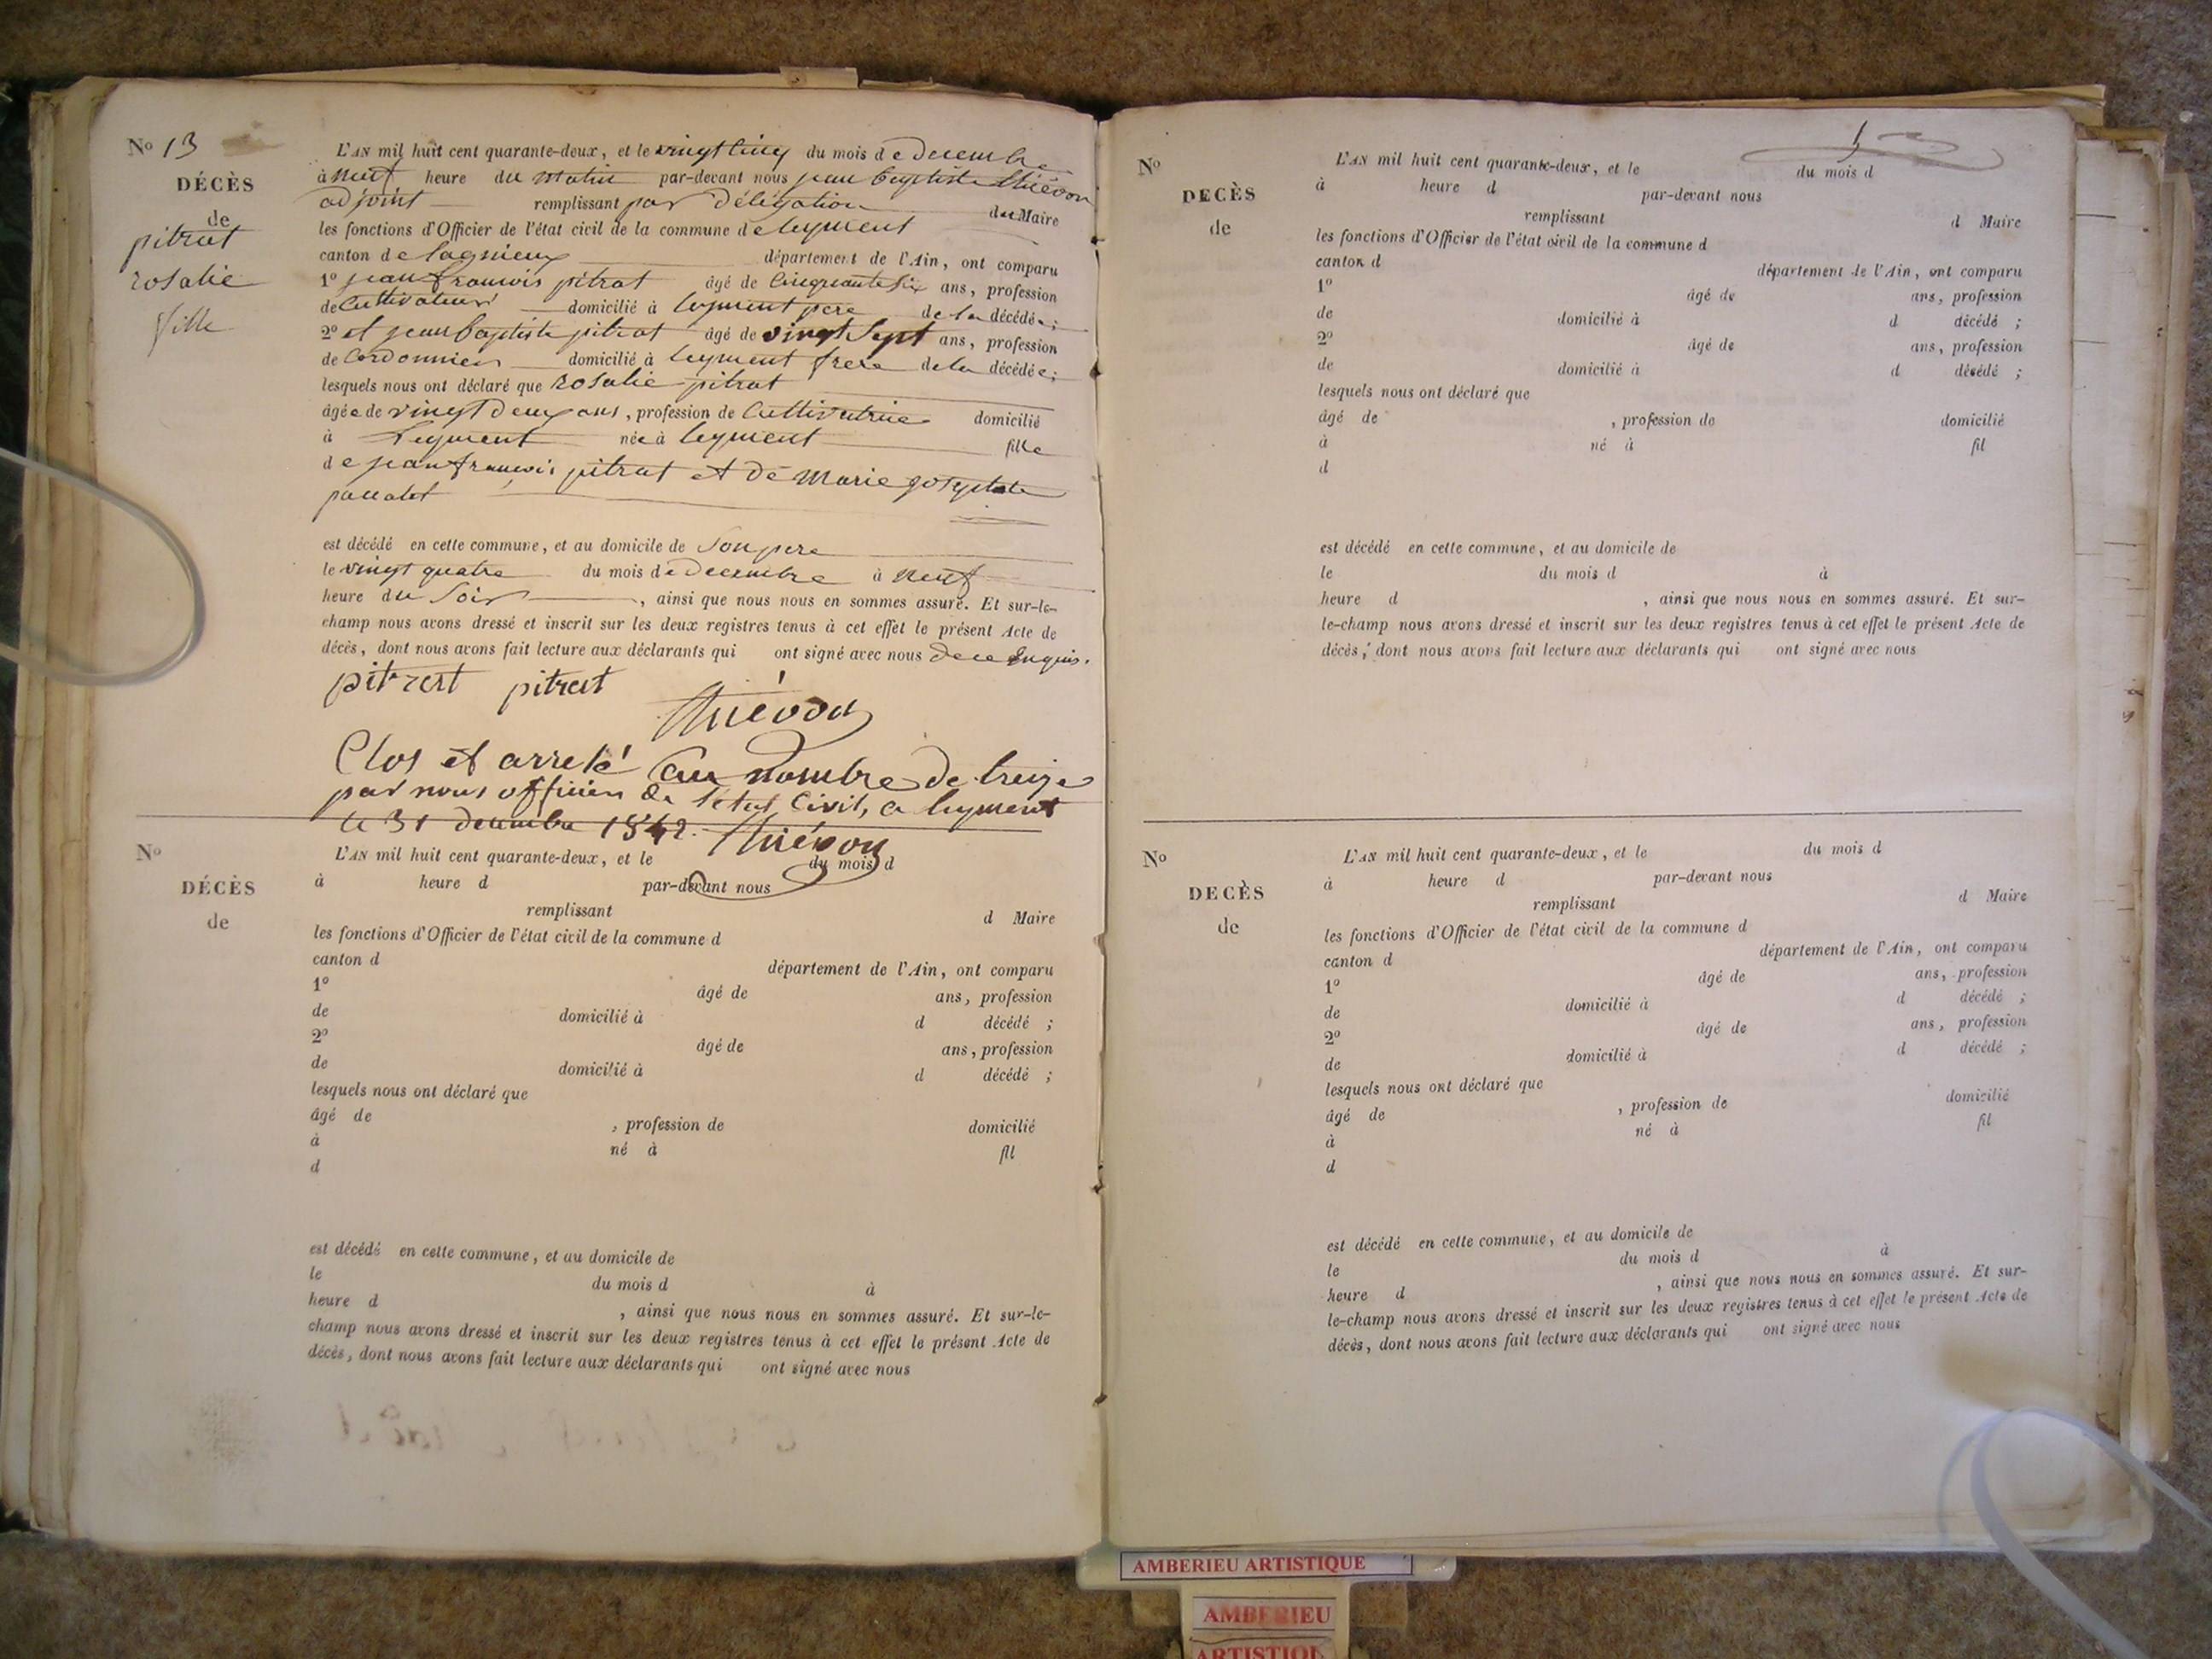 No 13
DÉCÈS
de
pitrat
rosalie
fille
L'AN mil huit cent quarante-deux, et le vingt cinq du mois de decembre
à neuf heure du matin par-devant nous jean baptiste thiévon
adjoint remplissant par délégation du Maire
les fonctions d'Officier de l'état civil de la commune de leyment
canton de lagnieux département de l'Ain, ont comparu
1º jean francois pitrat âgé de cinquante six ans, profession
de cultivateur domicilié à leyment pere de la décédée;
2º et jean baptiste pitrat âgé de vingt sept ans, profession
de cordonnier domicilié à leyment frere de la décédée;
lesquels nous ont déclaré que rosalie pitrat
âgée de vingt deux ans, profession de cultivatrice domicilié
à Leyment née à leyment fille
de jean francois pitrat et de marie
est décédé en cette commune, et au domicile de son pere
le vingt quatre du mois de decembre à neuf
heure du soir, ainsi que nous nous en sommes assuré. Et sur-le-
champ nous avons dressé et inscrit sur les deux registres tenus à cet effet le présent Acte de
décès, dont nous avons fait lecture aux déclarants qui ont signé avec nous de ce enquis.
pitrat pitrat
thiévon
Clos et arreté au nombre de treize
par nous officier de l'état Civil, a leyment
le 31 decembre 1842. thiévon
No
DÉCÈS
de
L'AN mil huit cent quarante-deux, et le du mois d
à heure d par-devant nous
remplissant d Maire
les fonctions d'Officier de l'état civil de la commune d
canton d département de l'Ain, ont comparu
1º âgé de ans, profession
de domicilié à d décédé ;
2º âgé de ans, profession
de domicilié à d décédé ;
lesquels nous ont déclaré que
âgé de , profession de domicilié
à né à fil
d
est décédé en cette commune, et au domicile de
le du mois d à
heure d , ainsi que nous nous en sommes assuré. Et sur-le-
champ nous avons dressé et inscrit sur les deux registres tenus à cet effet le présent Acte de
décès, dont nous avons fait lecture aux déclarants qui ont signé avec nous
No
DECÈS
de
L'AN mil huit cent quarante-deux, et le du mois d
à heure d par-devant nous
remplissant d Maire
les fonctions d'Officier de l'état civil de la commune d
canton d département de l'Ain, ont comparu
1º âgé de ans, profession
de domicilié à d décédé ;
2º âgé de ans, profession
de domicilié à d décédé ;
lesquels nous ont déclaré que
âgé de , profession de domicilié
à né à fil
d
est décédé en cette commune, et au domicile de
le du mois d à
heure d , ainsi que nous nous en sommes assuré. Et sur-
le-champ nous avons dressé et inscrit sur les deux registres tenus à cet effet le présent Acte de
décès, dont nous avons fait lecture aux déclarants qui ont signé avec nous
No
DECÈS
de
L'AN mil huit cent quarante-deux, et le du mois d
à heure d par-devant nous
remplissant d Maire
les fonctions d'Officier de l'état civil de la commune d
canton d département de l'Ain, ont comparu
1º âgé de ans, profession
de domicilié à d décédé ;
2º âgé de ans, profession
de domicilié à d décédé ;
lesquels nous ont déclaré que
âgé de , profession de domicilié
à né à fil
d
est décédé en cette commune, et au domicile de
le du mois d à
heure d , ainsi que nous nous en sommes assuré. Et sur-
le-champ nous avons dressé et inscrit sur les deux registres tenus à cet effet le présent Acte de
décès, dont nous avons fait lecture aux déclarants qui ont signé avec nous
AMBERIEU ARTISTIQUE
AMBERIEU